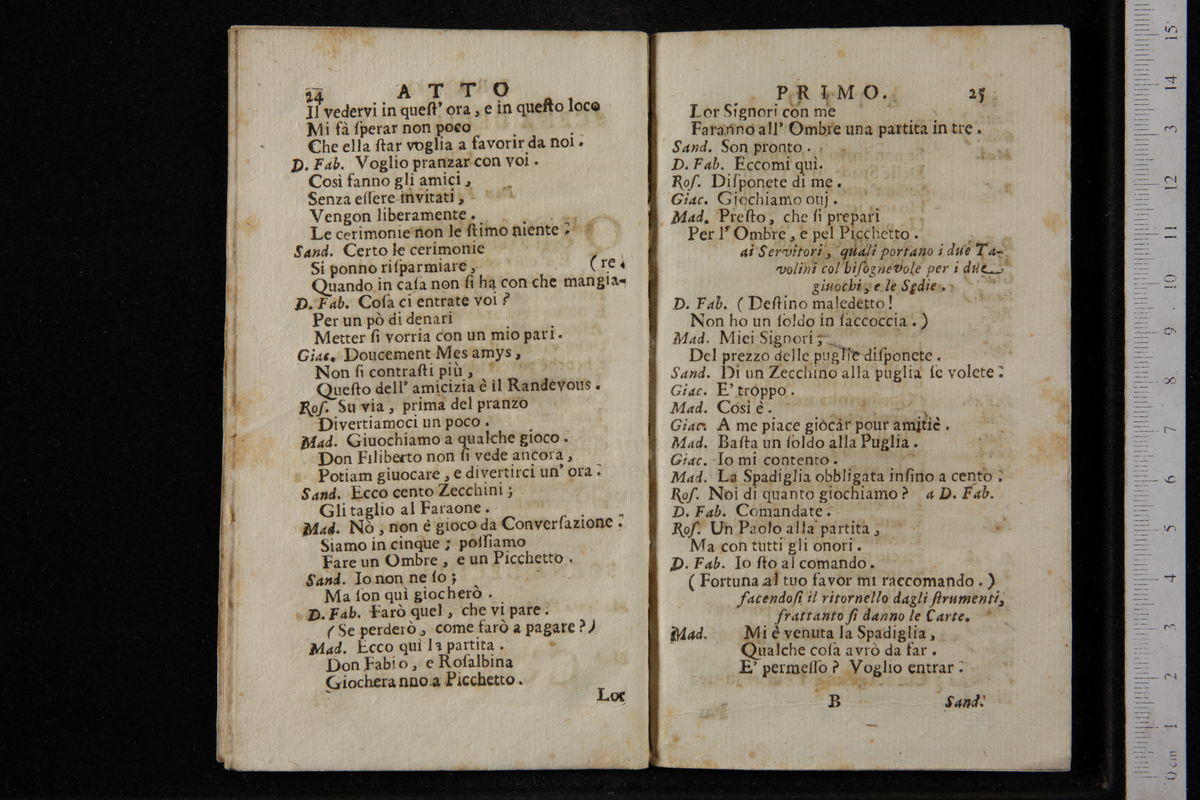 24 ATTO
Il vedervi in queſt' ora, e in queſto loco
Mi fà ſperar non poco
Che ella ſtar voglia a favorir da noi.
D. Fab. Voglio pranzar con voi.
Così fanno gli amici,
Senza eſſere invitati,
Vengon liberamente.
Le cerimonie non le ſtimo niente.
Sand. Certo le cerimonie
Si ponno riſparmiare, (re.
Quando in caſa non ſi ha con che mangia-
D. Fab. Coſa ci entrate voi?
Per un pò di denari
Metter ſi vorria con un mio pari.
Giac. Doucement Mes amys,
Non ſi contraſti più,
Queſto dell' amicizia è il Randevous.
Roſ. Su via, prima del pranzo
Divertiamoci un poco.
Mad. Giuochiamo a qualche gioco.
Don Filiberto non ſi vede ancora,
Potiam giuocare, e divertirci un' ora.
Sand. Ecco cento Zecchini;
Gli taglio al Faraone.
Mad. Nò, non è gioco da Converſazione.
Siamo in cinque; poſſiamo
Fare un Ombre, e un Picchetto.
Sand. Io non ne ſo;
Ma ſon quì giocherò.
D. Fab. Farò quel, che vi pare.
(Se perderò, come farò a pagare?)
Mad. Ecco quì la partita.
Don Fabio, e Roſalbina
Giocheranno a Picchetto.
Lor
PRIMO. 25
Lor Signori con me
Faranno all' Ombre una partita in tre.
Sand. Son pronto.
D. Fab. Eccomi quì.
Roſ. Diſponete di me.
Giac. Giochiamo ouj.
Mad. Preſto, che ſi prepari
Per l' Ombre, e pel Picchetto.
ai Servitori, quali portano i due Ta-
volini col biſognevole per i due
giuochi, e le Sedie.
D. Fab. (Deſtino maledetto!
Non ho un ſoldo in ſaccoccia.)
Mad. Miei Signori,
Del prezzo delle puglie diſponete.
Sand. Di un Zecchino alla puglia ſe volete.
Giac. E' troppo.
Mad. Così è.
Giac. A me piace giocár pour amitiè.
Mad. Baſta un ſoldo alla Puglia.
Giac. Io mi contento.
Mad. La Spadiglia obbligata inſino a cento.
Roſ. Noi di quanto giochiamo? a D. Fab.
D. Fab. Comandate.
Roſ. Un Paolo alla partita,
Ma con tutti gli onori.
D. Fab. Io ſto al comando.
(Fortuna al tuo favor mi raccomando.)
facendoſi il ritornello dagli ſtrumenti,
frattanto ſi danno le Carte.
Mad. Mi è venuta la Spadiglia,
Qualche coſa avrò da far.
E' permeſſo? Voglio entrar.
B Sand.
0 cm 1 2 3 4 5 6 7 8 9 10 11 12 13 14 15